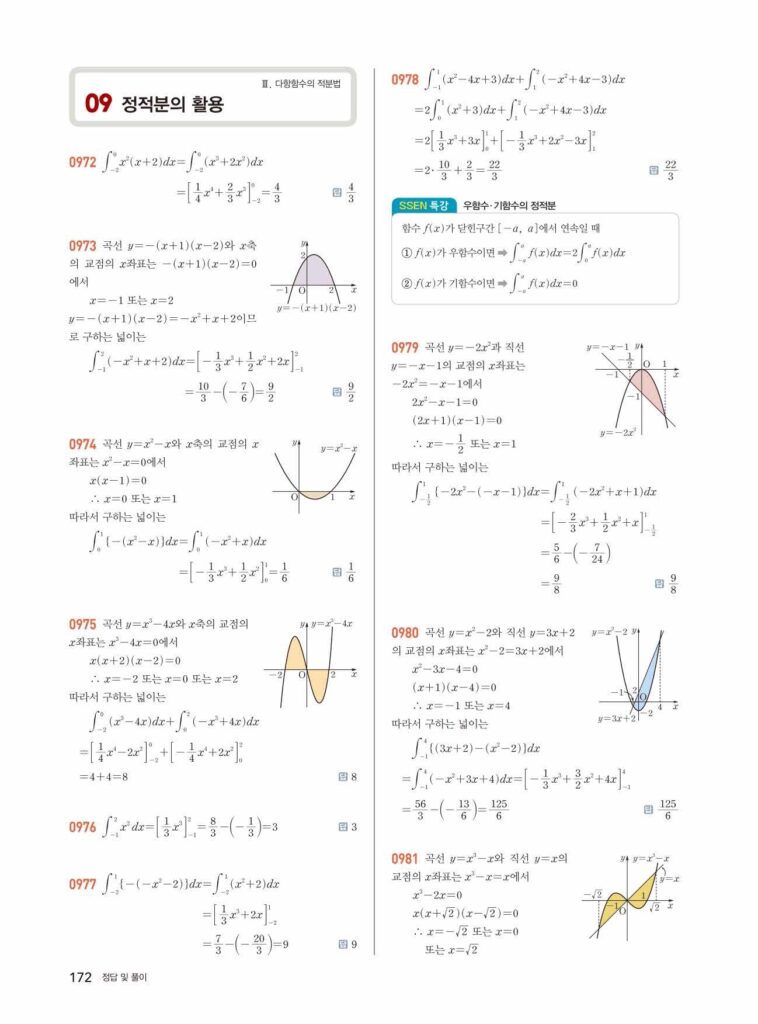 Ⅲ. 다항함수의 적분법
09 정적분의 활용
0972 ∫_{-2}^{0} x²(x+2)dx=∫_{-2}^{0} (x³+2x²)dx
=[1/4 x⁴+2/3 x³]_{-2}^{0}=4/3
답 4/3
0973 곡선 y=-(x+1)(x-2)와 x축
의 교점의 x좌표는 -(x+1)(x-2)=0
에서
x=-1 또는 x=2
y=-(x+1)(x-2)=-x²+x+2이므
로 구하는 넓이는
∫_{-1}^{2} (-x²+x+2)dx=[-1/3 x³+1/2 x²+2x]_{-1}^{2}
=10/3-(-7/6)=9/2
답 9/2
y
2
-1 O 2 x
y=-(x+1)(x-2)
0974 곡선 y=x²-x와 x축의 교점의 x
좌표는 x²-x=0에서
x(x-1)=0
∴ x=0 또는 x=1
따라서 구하는 넓이는
∫_{0}^{1} {-(x²-x)}dx=∫_{0}^{1} (-x²+x)dx
=[-1/3 x³+1/2 x²]_{0}^{1}=1/6
답 1/6
y y=x²-x
O 1 x
0975 곡선 y=x³-4x와 x축의 교점의
x좌표는 x³-4x=0에서
x(x+2)(x-2)=0
∴ x=-2 또는 x=0 또는 x=2
따라서 구하는 넓이는
∫_{-2}^{0} (x³-4x)dx+∫_{0}^{2} (-x³+4x)dx
=[1/4 x⁴-2x²]_{-2}^{0}+[-1/4 x⁴+2x²]_{0}^{2}
=4+4=8
답 8
y y=x³-4x
-2 O 2 x
0976 ∫_{-1}^{2} x² dx=[1/3 x³]_{-1}^{2}=8/3-(-1/3)=3
답 3
0977 ∫_{-2}^{1} {-(-x²-2)}dx=∫_{-2}^{1} (x²+2)dx
=[1/3 x³+2x]_{-2}^{1}
=7/3-(-20/3)=9
답 9
172 정답 및 풀이
0978 ∫_{-1}^{1} (x²-4x+3)dx+∫_{1}^{2} (-x²+4x-3)dx
=2∫_{0}^{1} (x²+3)dx+∫_{1}^{2} (-x²+4x-3)dx
=2[1/3 x³+3x]_{0}^{1}+[-1/3 x³+2x²-3x]_{1}^{2}
=2·10/3+2/3=22/3
답 22/3
SSEN 특강 우함수·기함수의 정적분
함수 f(x)가 닫힌구간 [-a, a]에서 연속일 때
① f(x)가 우함수이면 ➡ ∫_{-a}^{a} f(x)dx=2∫_{0}^{a} f(x)dx
② f(x)가 기함수이면 ➡ ∫_{-a}^{a} f(x)dx=0
0979 곡선 y=-2x²과 직선
y=-x-1의 교점의 x좌표는
-2x²=-x-1에서
2x²-x-1=0
(2x+1)(x-1)=0
∴ x=-1/2 또는 x=1
따라서 구하는 넓이는
∫_{-1/2}^{1} {-2x²-(-x-1)}dx=∫_{-1/2}^{1} (-2x²+x+1)dx
=[-2/3 x³+1/2 x²+x]_{-1/2}^{1}
=5/6-(-7/24)
=9/8
답 9/8
y=-x-1 y
-1/2 O 1
-1 x
-1
y=-2x²
0980 곡선 y=x²-2와 직선 y=3x+2
의 교점의 x좌표는 x²-2=3x+2에서
x²-3x-4=0
(x+1)(x-4)=0
∴ x=-1 또는 x=4
따라서 구하는 넓이는
∫_{-1}^{4} {(3x+2)-(x²-2)}dx
=∫_{-1}^{4} (-x²+3x+4)dx=[-1/3 x³+3/2 x²+4x]_{-1}^{4}
=56/3-(-13/6)=125/6
답 125/6
y=x²-2 y
-1 2
O
-2 4 x
y=3x+2
0981 곡선 y=x³-x와 직선 y=x의
교점의 x좌표는 x³-x=x에서
x³-2x=0
x(x+√2)(x-√2)=0
∴ x=-√2 또는 x=0
또는 x=√2
y y=x³-x
y=x
-√2 1
-1 O √2 x